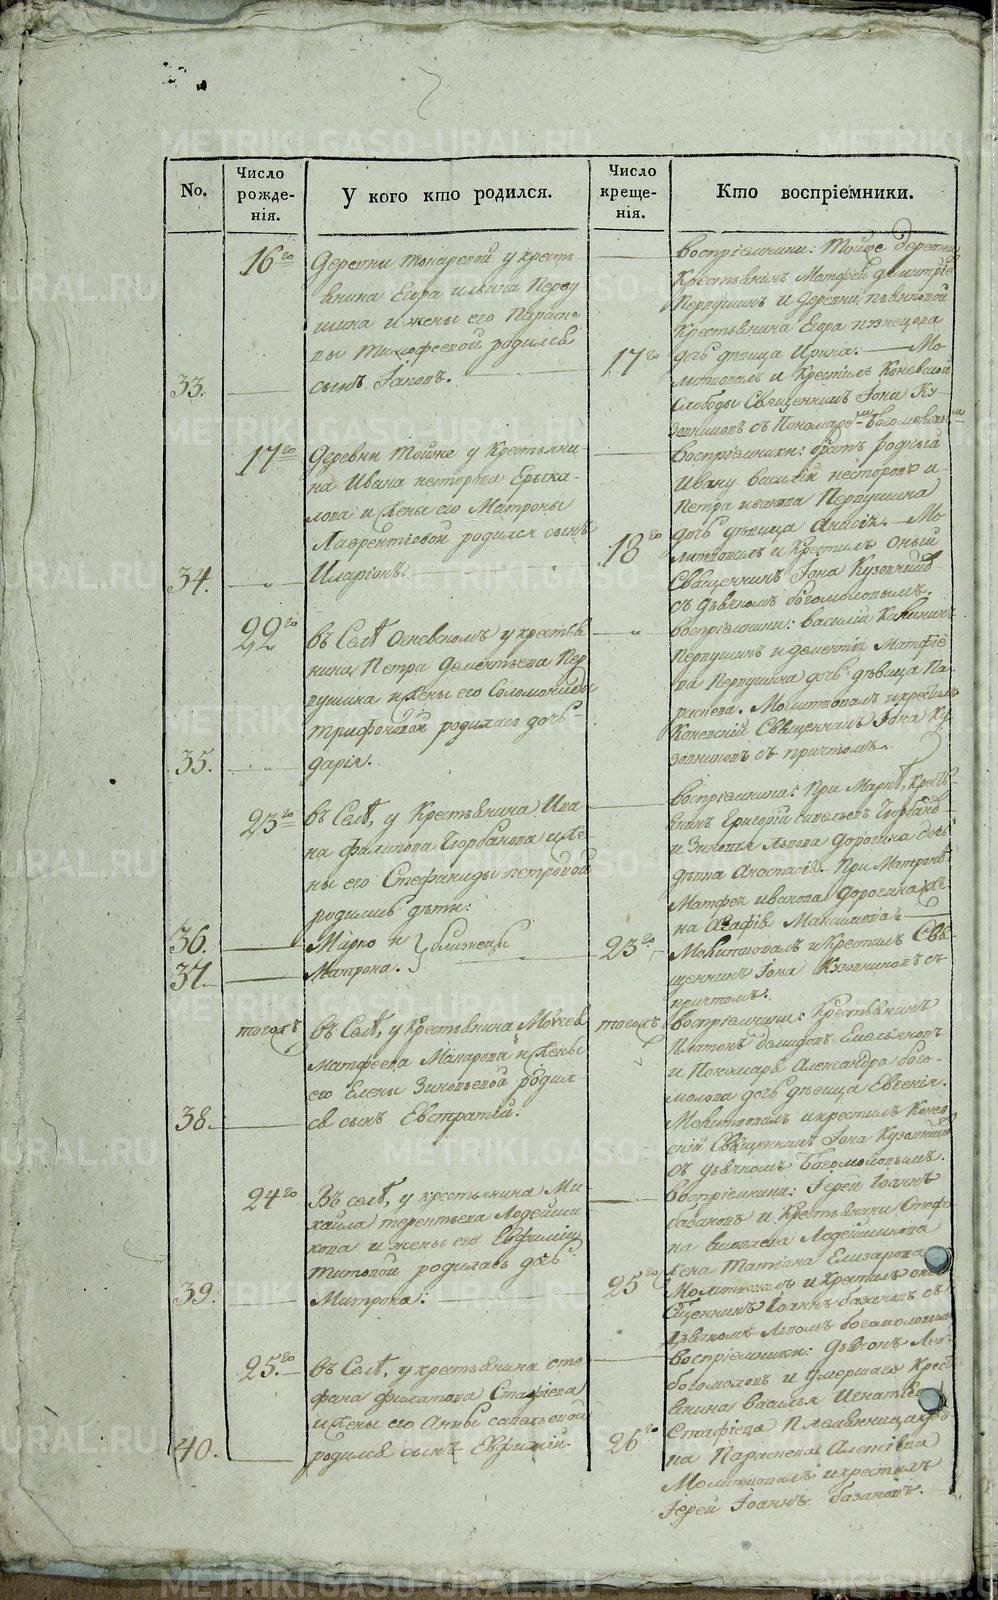 No.
Число рожде-нія.
У кого кто родился.
Число креще-нія.
Кто воспріемники.
16го
Деревни Токаревой у кресть
янина Егора Ильина Перву
шина и жены его Параско
вьи Тимофеевой родился
33.
сынъ Іаковъ.
17го
воспріемники: Тойже деревни
Крестьянинъ Матфей Дмитріе
Первушинъ и деревни
Крестьянина Егора
дочь дѣвица Ирина. Мо
литвовалъ и крестилъ Коневской
Слободы Священникъ Іона Ку
зовниковъ съ Пономаремъ Богомоловымъ
17го
Деревни Тойже у Крестьяни
на Ивана Нестерова Ерыка
лова и жены его Матроны
Лаврентіевой родился сынъ
34.
Иларіонъ.
18го
Воспріемники: братъ родный
Ивану Василій Нестеровъ и
Петра Иванова Первушина
дочь дѣвица Анисія. Мо
литвовалъ и Крестилъ Оный
Священникъ Іона Кузовников
съ дьячкомъ Богомоловымъ.
22го
въ Селѣ Коневскомъ у крестья
нина Петра Дементьева Пер
вушина и жены его Соломониды
Трифоновой родилась дочь
35.
Дарія.
воспріемники: Василій
Первушинъ и Дементія Матфѣе
ва Первушина дочь дѣвица Па
раскева. Молитвовалъ и крестилъ
Коневскій Священникъ Іона Ку
зовниковъ съ причтомъ.
23го
въ Селѣ, у Крестьянина Ива
на Филипова Горбанова и же
ны его Стефаниды Петровой
родились дѣти:
36.
Марко и } близнецы
37.
Матрона.
23го
воспріемники: При Маркѣ, Кресть
янинъ Григорій Савельевъ Горбанов
и Зиновья Львова Дорогина дочь
дѣвка Анастасія. При Матронѣ
Матфей Иванова Дорогина же
на Агафія Максимова.
Молитвовалъ и Крестилъ Свя
щенникъ Іона Кузовниковъ съ
причтомъ.
тогожъ
въ Селѣ, у Крестьянина Моѵсея
Матфеева Макарова и жены
его Елены Зиновьевой родил
38.
ся сынъ Евстратій.
тогожъ
воспріемники: Крестьянинъ
Платонъ Емельяновъ
и Пономаря Александра Бого
молова дочь дѣвица Евгенія.
Молитвовалъ и крестилъ Конев
скій Священникъ Іона Кузовников
съ дьячкомъ Богомоловымъ.
24го
Въ селѣ, у крестьянина Ми
хайла Терентьева Лодейщи
кова и жены его Евфиміи
Титовой родилась дочь
39.
Матрона.
25го
воспріемники: Іерей Іоаннъ
Базановъ и Крестьянина Стефа
на Лодейщикова
жена Татіана Елизарова
Молитвовалъ и крестилъ оный
Священникъ Іоаннъ Базановъ съ
Дьячкомъ Львомъ Богомоловымъ
25го
въ Селѣ, у крестьянина Сте
фана Филатова Стафѣева
и жены его Анны Савельевой
40.
родился сынъ Евфимій.
26го
воспріемники: Дьячокъ Левъ
Богомоловъ и умершаго Крест
янина Василья Игнатьева
Стафѣева
на Параскева Алексіева
Молитвовалъ и крестилъ
Іерей Іоаннъ Базановъ.
METRIKI.GASO-URAL.RU